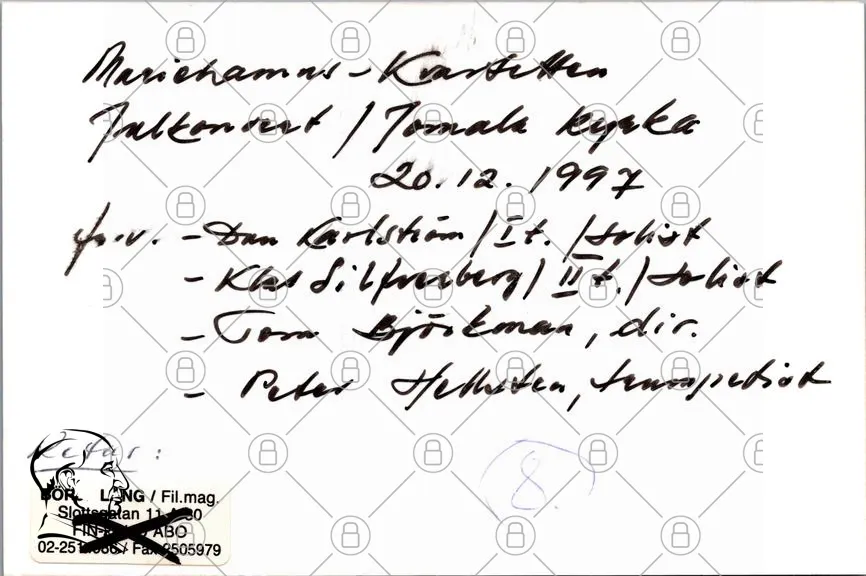 Mariehamns-Kvartetten
Julkonsert / Jomala kyrka
20.12.1997
fr.v. - Dan Karlström / I t. / solist
- Klas Silfverberg / II t. / solist
- Tom Björkman, dir.
- Peter Hellsten, trumpetist
Refar:
8.
/ Fil.mag.
Slottsgatan 11
ÅBO